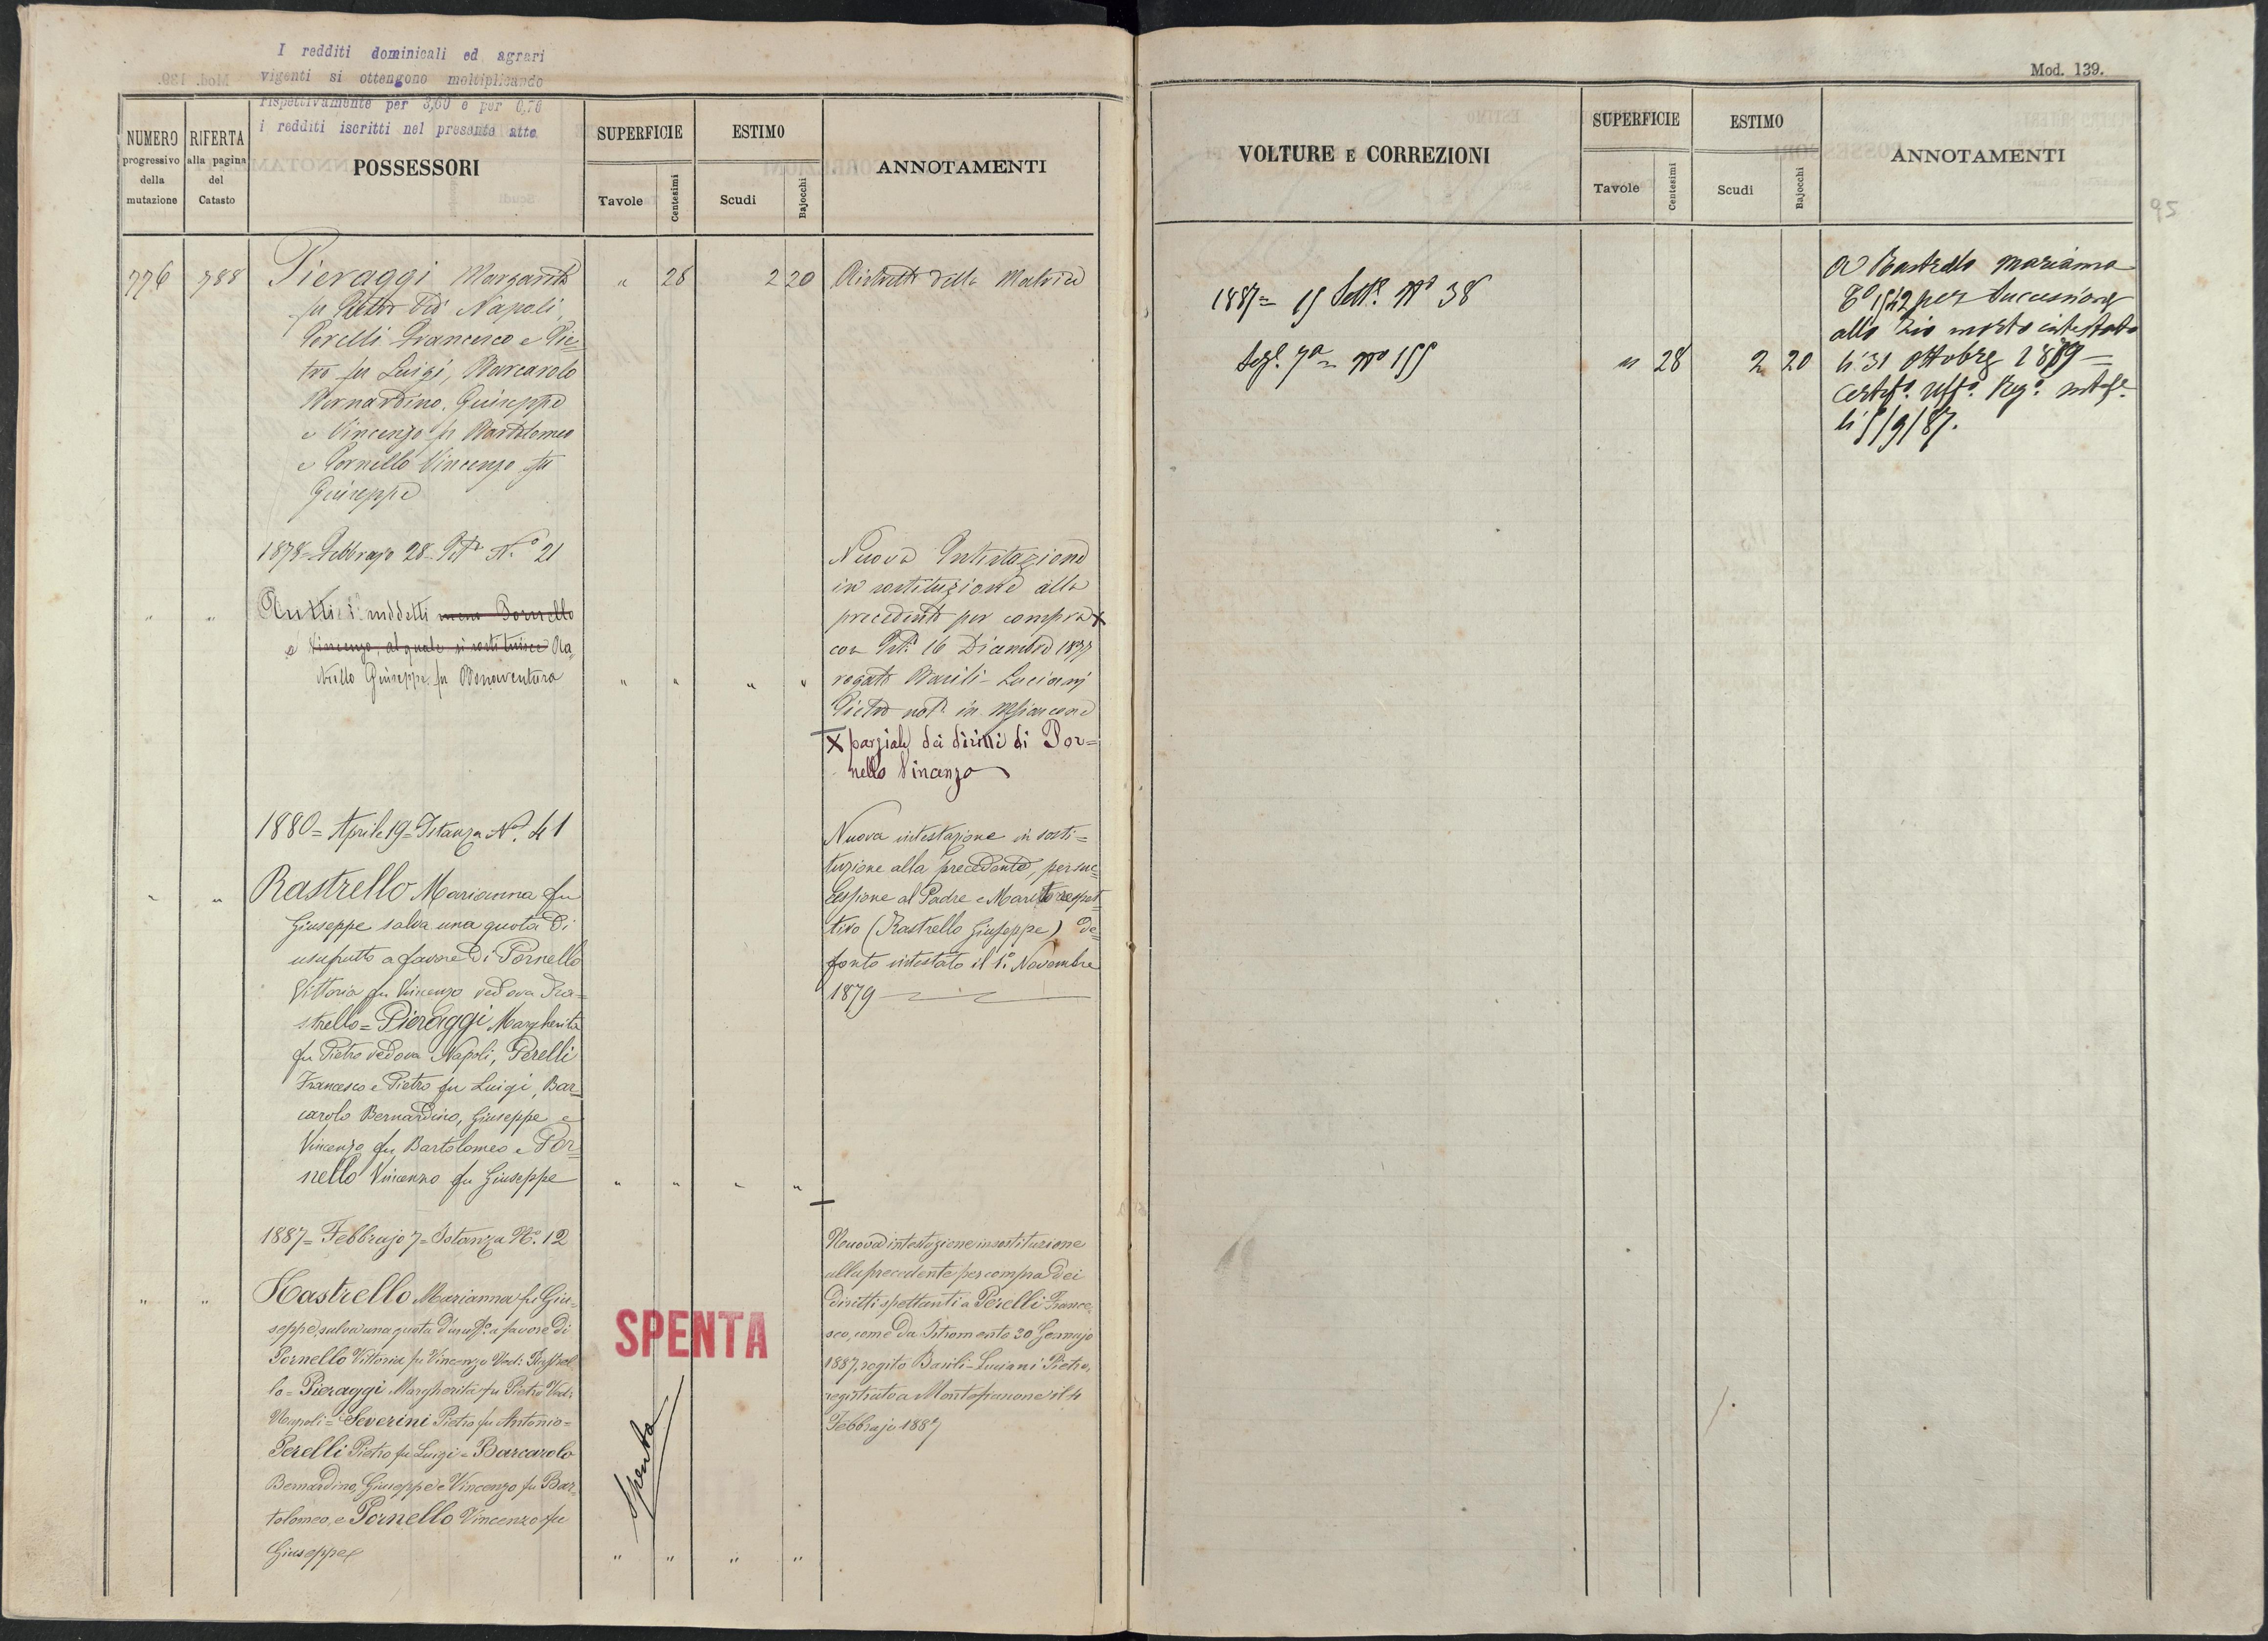 I redditi dominicali ed agrari
vigenti si ottengono moltiplicando
rispettivamente per 3,60 e per 0,76
i redditi iscritti nel presente atto
NUMERO
progressivo
della
mutazione
RIFERTA
alla pagina
del
Catasto
POSSESSORI
SUPERFICIE
Tavole
Centesimi
ESTIMO
Scudi
Bajocchi
ANNOTAMENTI
776 788 Pieraggi Margarita " 28 2 20 della Matrice
fu Pietro Ved Napoli,
Perelli Francesco e Pie=
tro fu Luigi, Barcarolo
Bernardino, Giuseppe
e Vincenzo fu Bartolomeo
e Pornello Vincenzo fu
Giuseppe
1878 = Febbrajo 28 N.° 21
" " Tutti i suddetti meno Pornello
e Vincenzo, al quale si sostituisce Ra
strello Giuseppe fu Bonaventura " " " "
Nuova Intestazione
in sostituzione alla
precedente per compra X
con 16 Dicembre 1877
rogato Basili-Luciani
Pietro not. in
X parziale dei diritti di Por=
nello Vincenzo
1880 = Aprile 19 = Istanza N.° 41
" " Rastrello Marianna fu
Giuseppe salva una quota di
usufrutto a favore di Pornello
Vittoria fu Vincenzo vedova Ra=
strello = Pieraggi Margherita
fu Pietro vedova Napoli, Perelli
Francesco e Pietro fu Luigi, Bar=
carolo Bernardino, Giuseppe e
Vincenzo fu Bartolomeo e Por=
nello Vincenzo fu Giuseppe " " " "
Nuova intestazione in sosti=
tuzione alla precedente, per suc=
cessione al Padre e Marito respet=
tivo (Rastrello Giuseppe) de=
fonto intestato il 1.° Novembre
1879
1887 = Febbrajo 7 = Istanza N.° 12
" " Rastrello Marianna fu Giu=
seppe, salva una quota d'usuff.° a favore di
Pornello Vittoria fu Vincenzo Ved: Rastrel
lo = Pieraggi Margherita fu Pietro Ved:
Napoli = Severini Pietro fu Antonio =
Perelli Pietro fu Luigi = Barcarolo
Bernardino, Giuseppe e Vincenzo fu Bar=
tolomeo, e Pornello Vincenzo fu
Giuseppe " " " "
SPENTA
Spenta
Nuova intestazione in sostituzione
alla precedente per compra dei
diritti spettanti a Perelli France=
sco, come da Istromento 20 Gennajo
1887, rogito Basili-Luciani Pietro,
registrato a Montefiascone il 4
Febbrajo 1887
Mod. 139.
VOLTURE E CORREZIONI
SUPERFICIE
Tavole
Centesimi
ESTIMO
Scudi
Bajocchi
ANNOTAMENTI
95
1887 = 15 Sett.e N° 38
7a = N° 155 " 28 2 20
A Rastrello Marianna
per Successione
allo Zio morto intestato
li 31 Ottobre